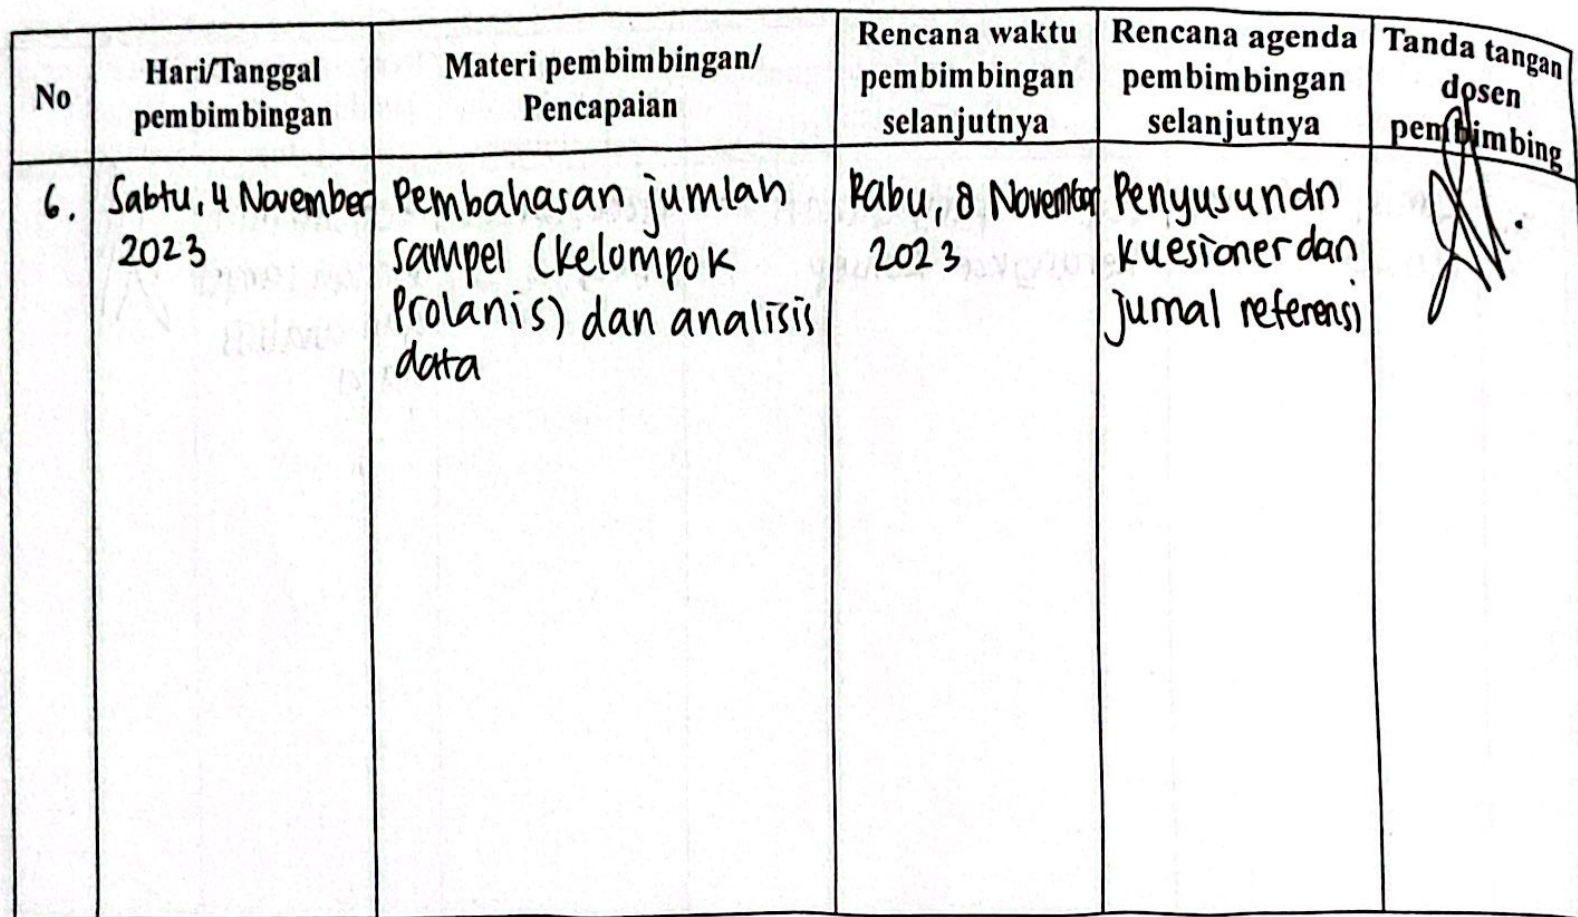 No
Hari/Tanggal
pembimbingan
Materi pembimbingan/
Pencapaian
Rencana waktu
pembimbingan
selanjutnya
Rencana agenda
pembimbingan
selanjutnya
Tanda tangan
dosen
pembimbing
6.
Sabtu, 4 November
2023
Pembahasan jumlah
sampel (kelompok
Prolanis) dan analisis
data
Rabu, 8 November
2023
Penyusunan
kuesioner dan
jurnal referensi